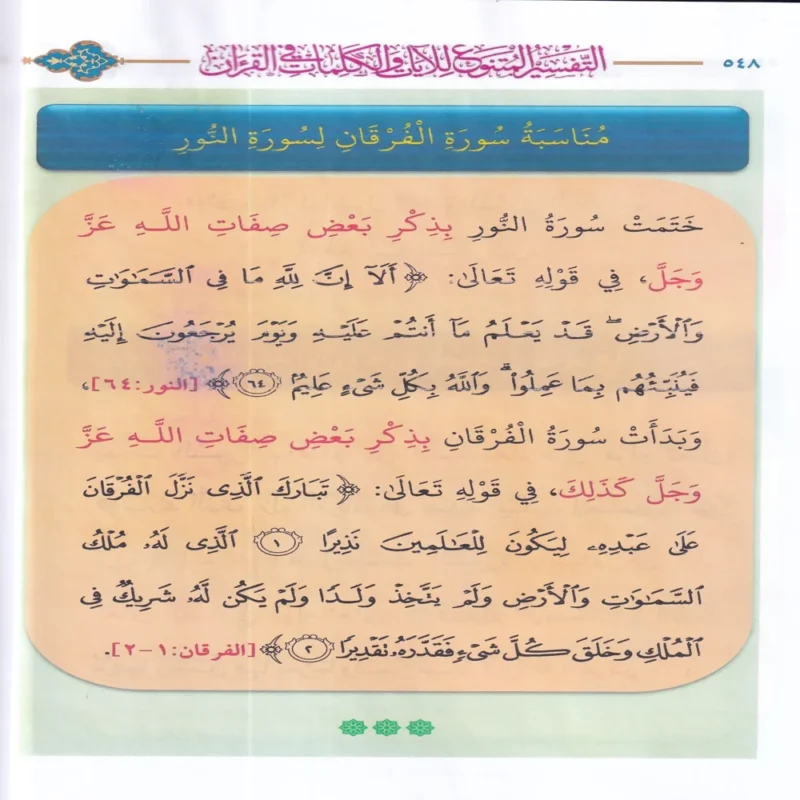 ٥٤٨
التفسير المتنوع للآيات والكلمات في القرآن
مُنَاسَبَةُ سُورَةِ الْفُرْقَانِ لِسُورَةِ النُّورِ
خَتَمَتْ سُورَةُ النُّورِ بِذِكْرِ بَعْضِ صِفَاتِ اللَّهِ عَزَّ
وَجَلَّ، فِي قَوْلِهِ تَعَالَىٰ: ﴿ أَلَآ إِنَّ لِلَّهِ مَا فِي السَّمَٰوَٰتِ
وَالْأَرْضِ ۖ قَدْ يَعْلَمُ مَآ أَنتُمْ عَلَيْهِ وَيَوْمَ يُرْجَعُونَ إِلَيْهِ
فَيُنَبِّئُهُم بِمَا عَمِلُوا۟ ۗ وَاللَّهُ بِكُلِّ شَىْءٍ عَلِيمٌ ٦٤ ﴾ [النور:٦٤]،
وَبَدَأَتْ سُورَةُ الْفُرْقَانِ بِذِكْرِ بَعْضِ صِفَاتِ اللَّهِ عَزَّ
وَجَلَّ كَذَلِكَ، فِي قَوْلِهِ تَعَالَىٰ: ﴿ تَبَارَكَ الَّذِى نَزَّلَ الْفُرْقَانَ
عَلَىٰ عَبْدِهِۦ لِيَكُونَ لِلْعَٰلَمِينَ نَذِيرًا ١ الَّذِى لَهُۥ مُلْكُ
السَّمَٰوَٰتِ وَالْأَرْضِ وَلَمْ يَتَّخِذْ وَلَدًا وَلَمْ يَكُن لَّهُۥ شَرِيكٌ فِى
الْمُلْكِ وَخَلَقَ كُلَّ شَىْءٍ فَقَدَّرَهُۥ تَقْدِيرًا ٢ ﴾ [الفرقان:١-٢].